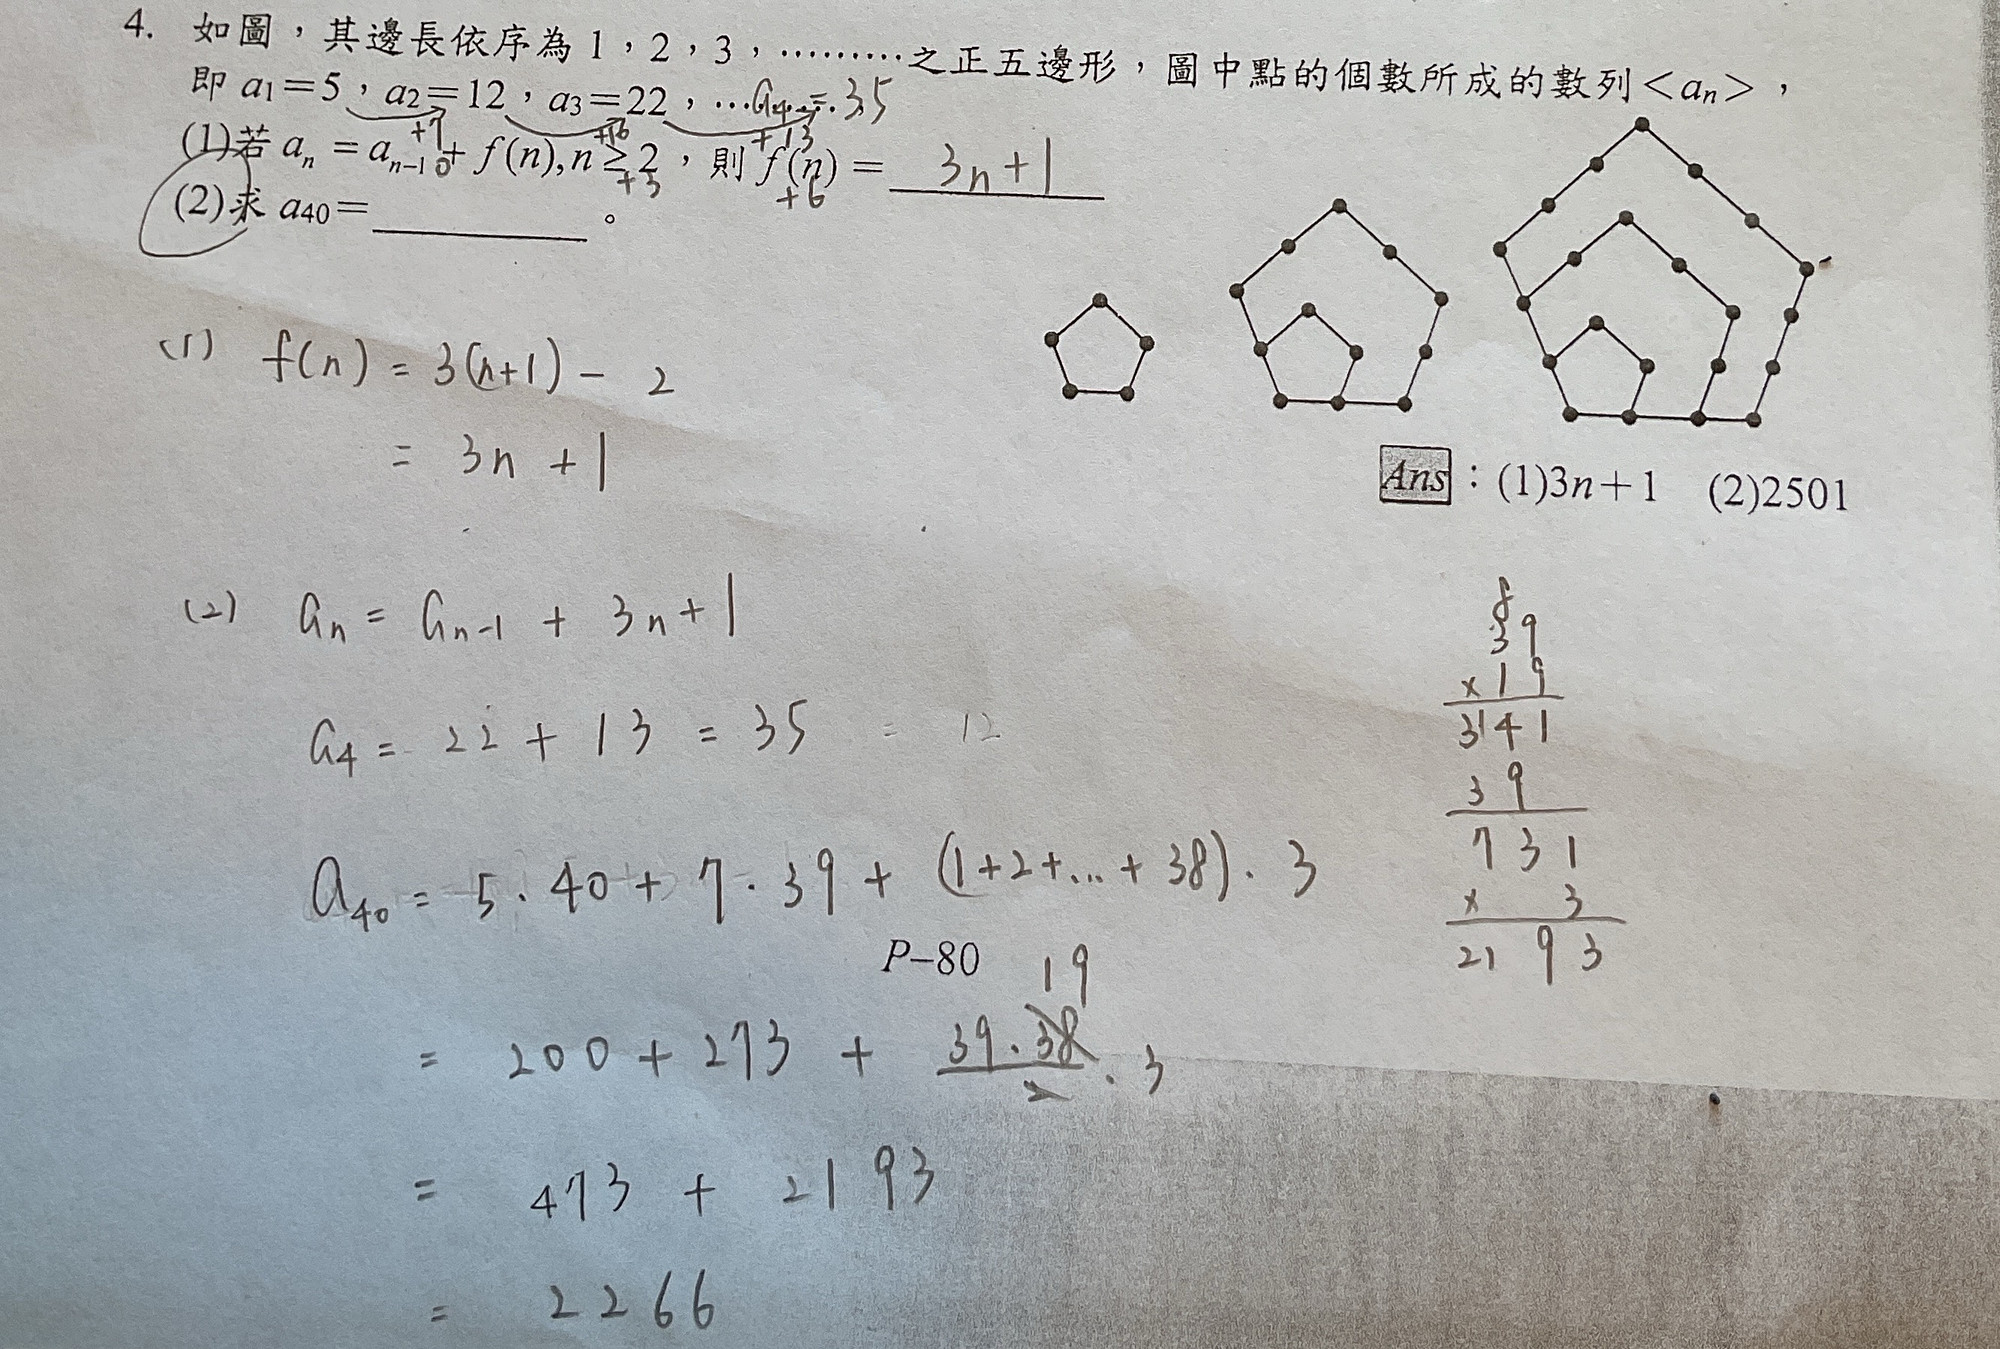 4. 如圖，其邊長依序為 1，2，3，………之正五邊形，圖中點的個數所成的數列<an>，
即 a1=5，a2=12，a3=22，…a4=35
+7 +10 +13
(1)若 an = an-1 + f(n), n ≥ 2，則 f(n) = 3n+1
+3 +6
(2)求 a40= 。
(1) f(n) = 3(n+1) - 2
= 3n + 1
Ans：(1)3n+1 (2)2501
(2) an = an-1 + 3n+1
a4 = 22 + 13 = 35 = 12
a40 = 5·40 + 7·39 + (1+2+...+38)·3
P-80
19
= 200 + 273 + 39·38/2 ·3
= 473 + 2193
= 2266
8
39
×19
3141
39
731
× 3
2193